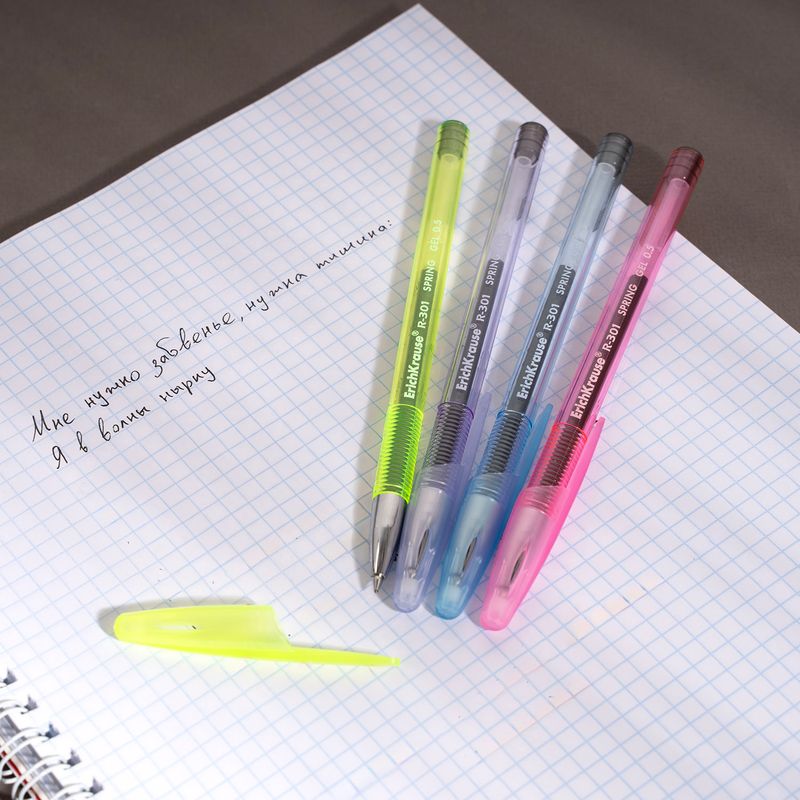 Мне нужно забвенье, нужна тишина:
Я в волны нырну
ErichKrause® R-301 SPRING GEL 0.5
ErichKrause® R-301 SPRING
ErichKrause® R-301 SPRING
ErichKrause® R-301 SPRING GEL 0.5